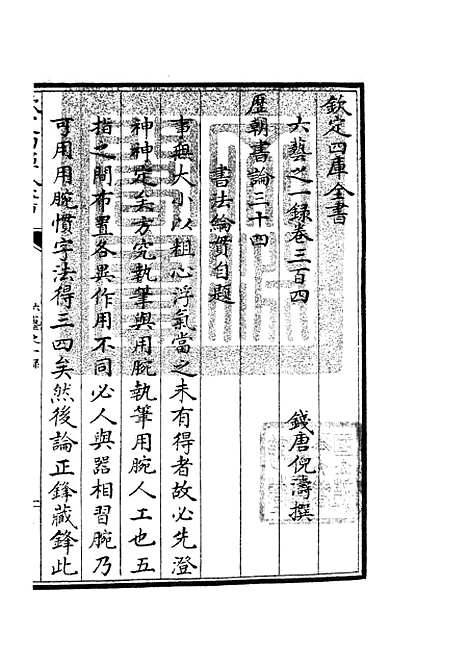 欽定四庫全書
六藝之一録卷三百四
錢唐倪濤撰
歷朝書論三十四
書法綸貫自題
事無大小以粗心浮氣當之未有得者故必先澄
神神定矣方究執筆與用腕執筆用腕人工也五
指之間布置各異作用不同必人與器相習腕乃
可用用腕慣字法得三四矣然後論正鋒藏鋒此
六藝之一録